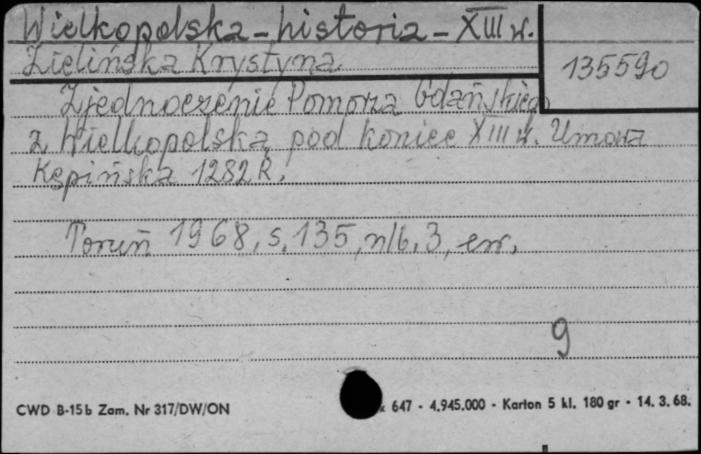 Wielkopolska - historia - XIII w.
Zielińska Krystyna
135590
Zjednoczenie Pomorza Gdańskiego
z Wielkopolską pod koniec XIII w. Umowa
Kępińska 1282 R.
Toruń 1968, s. 135, nlb. 3, err.
9
CWD B-15b Zam. Nr 317/DW/ON
647 - 4.945.000 - Karton 5 kl. 180 gr - 14. 3. 68.